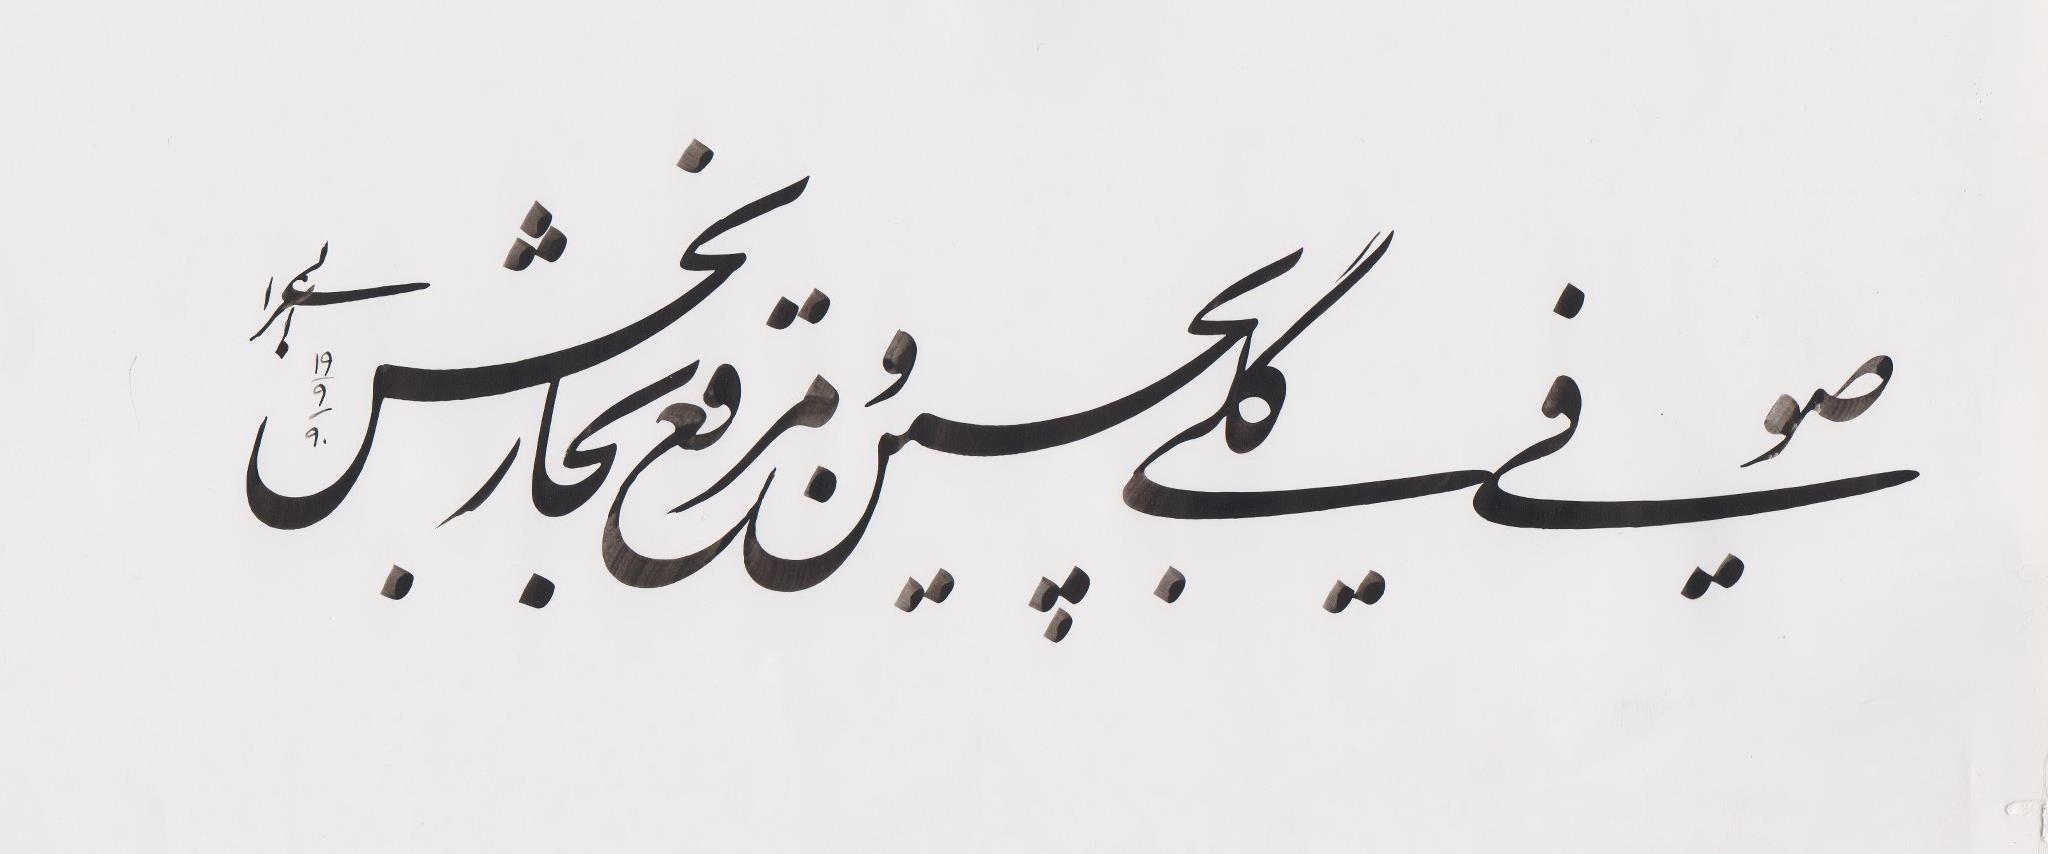 صوفی گلی بچین و مرقع بخار بخش
۱۹/۹/۹۰